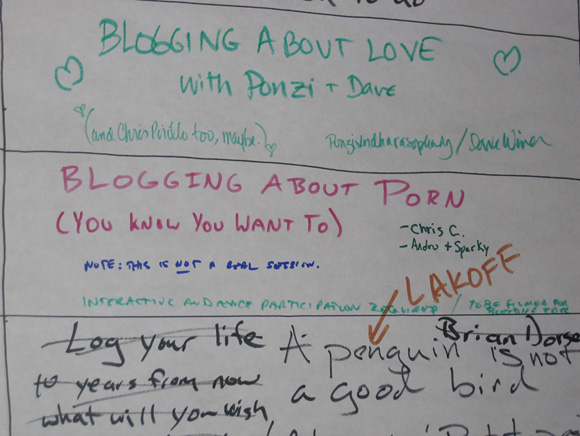 to do
BLOGGING ABOUT LOVE
with Ponzi + Dave
(and Chris Pirillo too, maybe.)
/ Dave Winer
BLOGGING ABOUT PORN
(YOU KNOW YOU WANT TO)
- Chris C.
- Andru + Sparky
NOTE: THIS IS NOT A REAL SESSION.
LAKOFF
INTERACTIVE AUDIENCE PARTICIPATION REQUIRED / TO BE FILMED FOR
Log your life
10 years from now
what will you wish
Brian Dorse
A penguin is not
a good bird